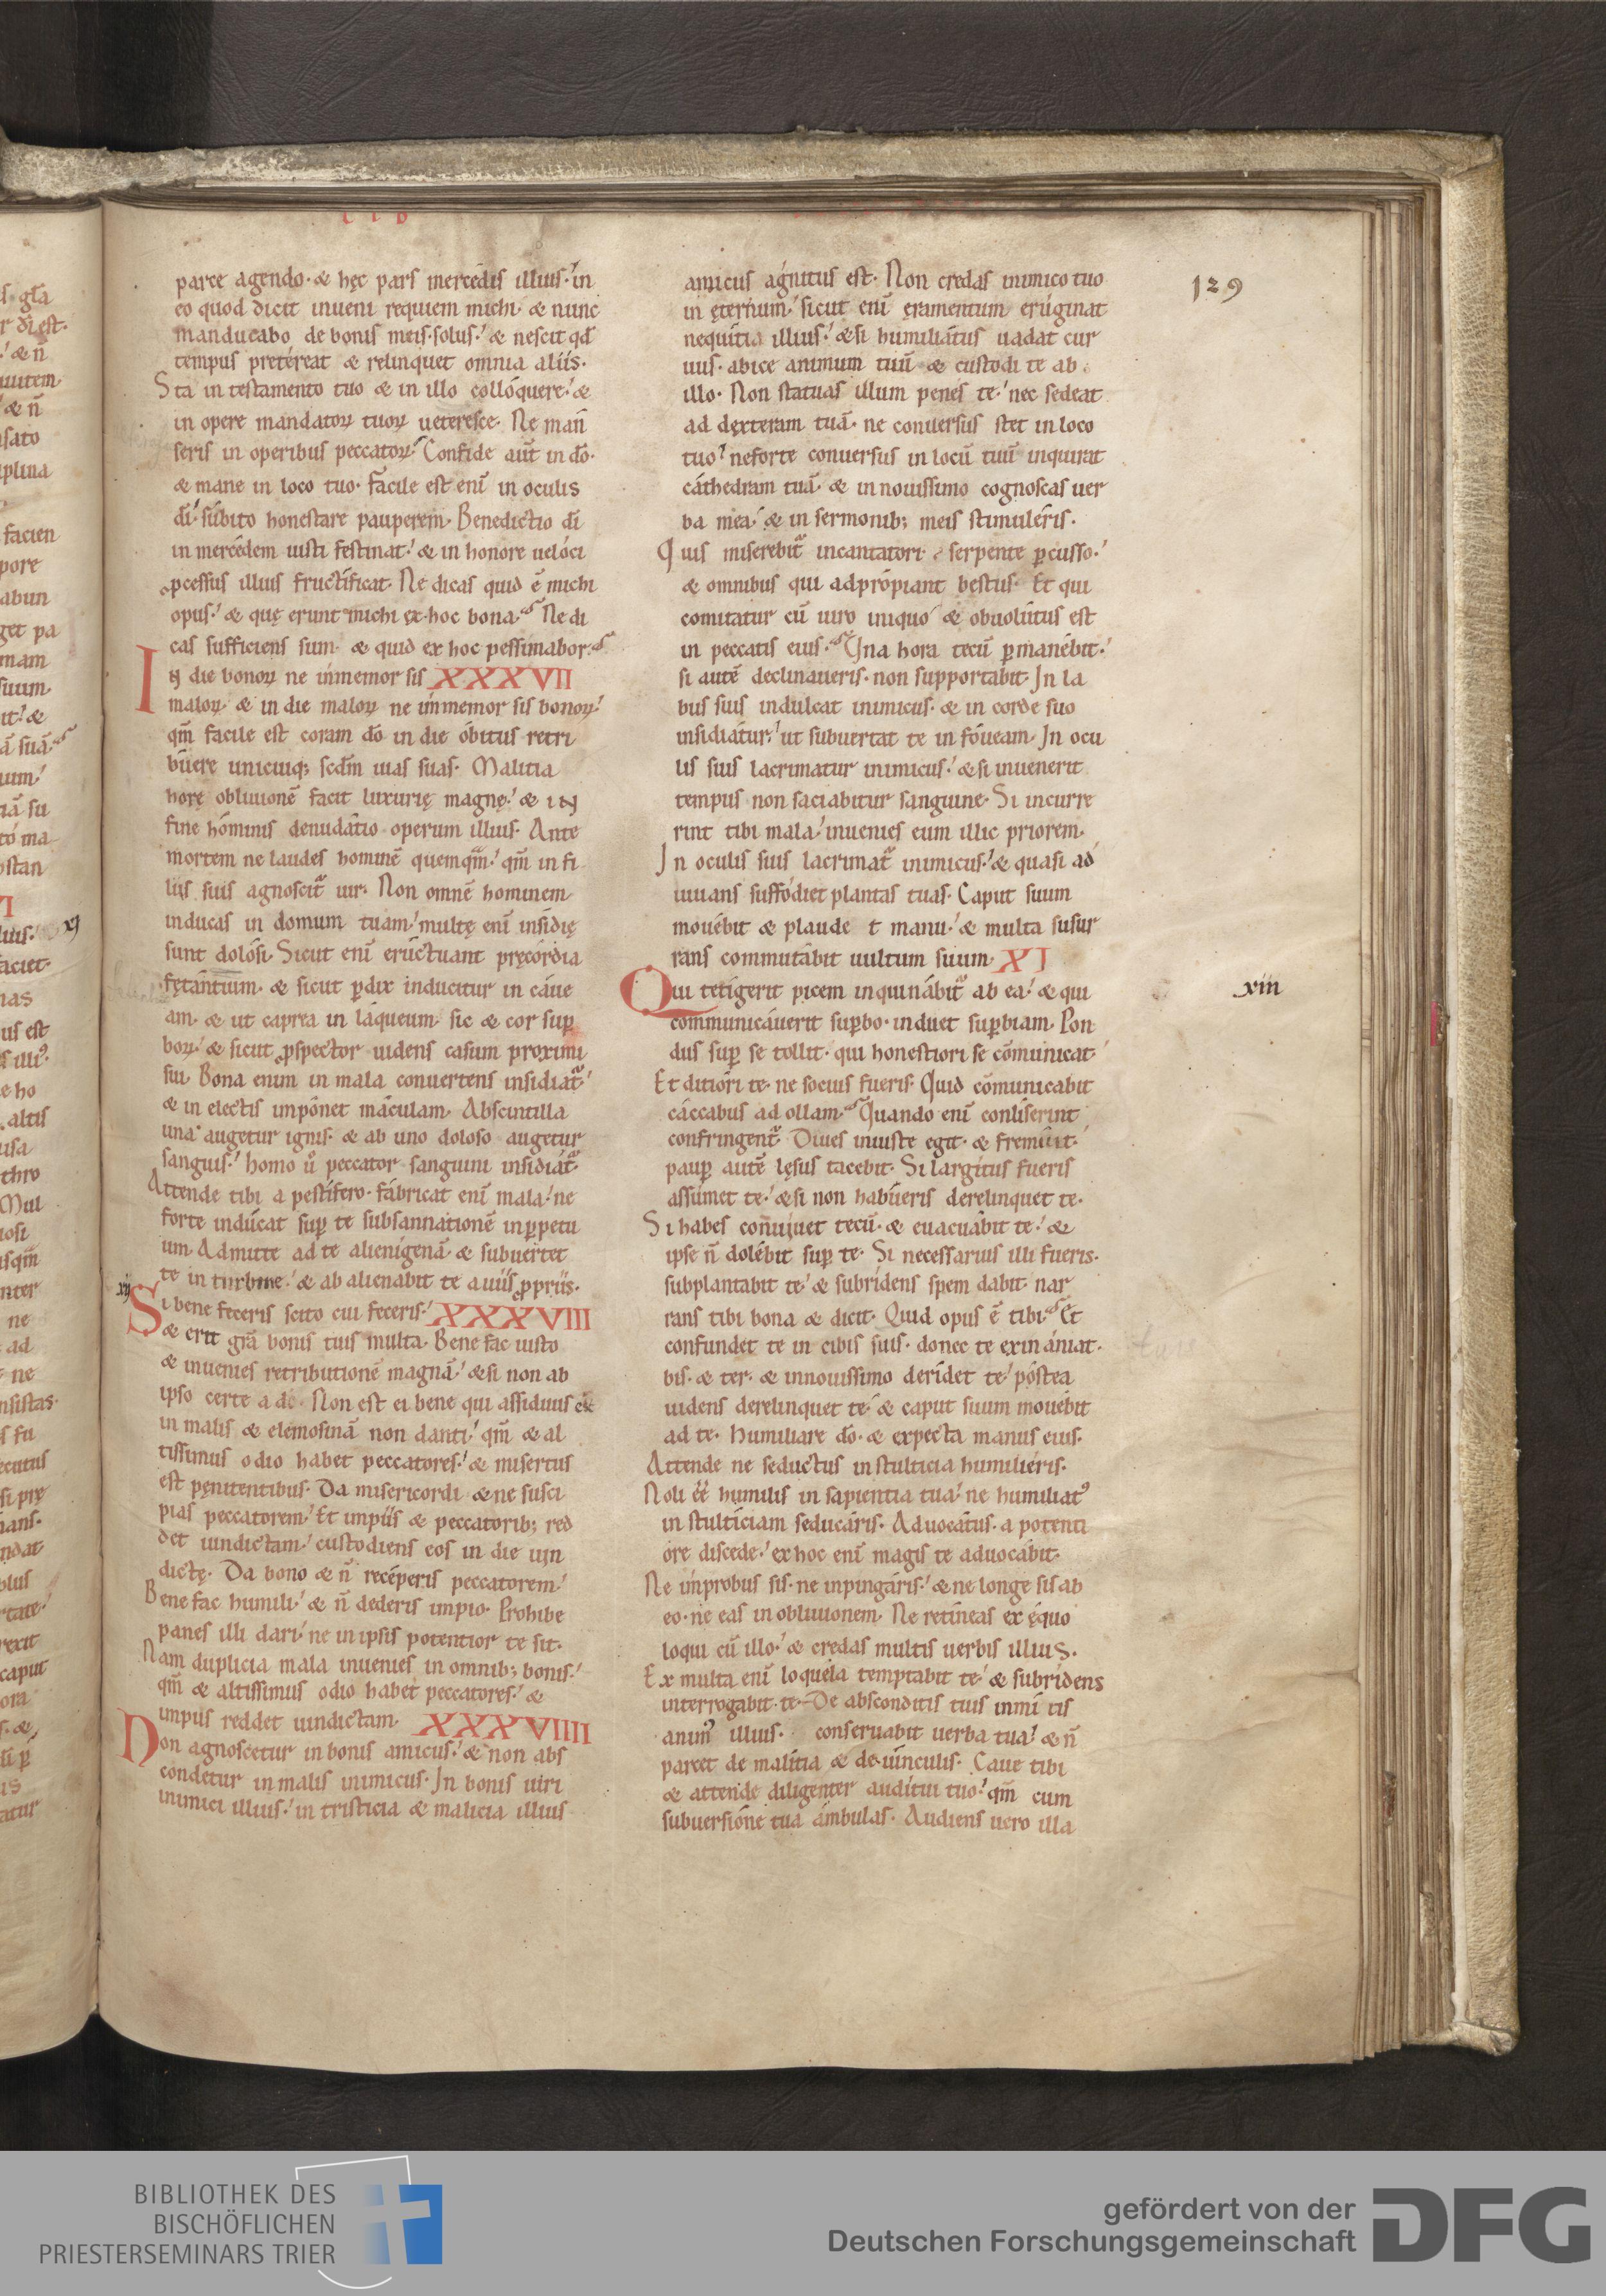 LIB
129
parce agendo· & hęc pars mercedis illius·' in
eo quod dicit inueni requiem michi· & nunc
manducabo de bonis meis·solus·' & nescit qđ
tempus pretéreat & relinquet omnia aliis·
Sta in testamento tuo & in illo collóquere·' &
in opere mandatoꝝ tuoꝝ ueteresce· Ne mañ
seris in operibus peccatoꝝ·' Confide aūt in dō·
& mane in loco tuo· facile est enī in oculis
dī·' súbito honestare pauperem· Benedictio dī
in mercédem iusti festinat·' & in honore uelóci
ꝓcessus illius fructificat· Ne dicas quid ē michi
opus·' & quę erunt michi ex hoc bona· Ne di
cas sufficiens sum· & quid ex hoc pessimabor·
IN die bonoꝝ ne inmemor sis XXXVII
maloꝝ· & in die maloꝝ ne inmemor sis bonoꝝ·'
qm̄ facile est coram dō in die óbitus retri
búere unicuiq; scdm̄ uias suas· Malitia
horę obliuionē facit luxurię magnę·' & IN
fine hóminis denudátio operum illius· Ante
mortem ne laudes hominē quemqm̄·' qm̄ in fi
liis suis agnoscit᷑ uir· Non omnē hominem
inducas in domum tuam·' multę enī insidię
sunt dolósi· Sicut enī erúctuant pręcórdia
fętántium· & sicut ꝑdix inducitur in cáue
am· & ut caprea in láqueum· sic & cor suꝑ
boꝝ·' & sicut ꝓspector uidens casum proximi
sui· Bona enim in mala conuertens insidiat᷑·'
& in electis inpónet máculam· Abscintilla
una augetur ignis· & ab uno doloso augetur
sanguis·' homo ů peccator sanguini insidiát᷑·
Attende tibi a pestífero· fábricat enī mala·' ne
forte indúcat suꝑ te subsannationē inꝑpetu
um· Admitte ad te alienígenā· & subuertet
te in turbine·' & ab alienabit te a uiis ꝓpriis·
xij
Si bene feceris scito cui feceris·' XXXVIII
& erit grā bonis tuis multa· Bene fac iusto
& inuenies retributionē magnā·' & si non ab
ipso certe a dō· Non est ei bene qui assiduus est
in malis & elemosinā non danti·' qm̄ & al
tissimus odio habet peccatores·' & misertus
est pęnitentibus· Da misericordi & ne susci
pias peccatorem·' Et impiis & peccatorib; red
det uindictam·' custodiens eos in die uin
dictę· Da bono & n̄ recéperis peccatorem·'
Bene fac humili·' & n̄ dederis impio· Prohibe
panes illi dari·' ne in ipsis potentior te sit·
Nam duplicia mala inuenies in omnib; bonis·'
qm̄ & altissimus odio habet peccatores·' &
impiis reddet uindictam· XXXVIIII
Non agnoscetur in bonis amicus·' & non abs
condetur in malis inimicus· In bonis uiri
inimici illius·' in tristicia & malicia illius
amicus ágnitus est· Non credas inimico tuo
in ęternum·' sicut enī ęramentum erúginat
nequítia illius·' & si humiliátus uadat cur
uus· abice animum tuū & custodi te ab
illo· Non statuas illum penes te·' nec sedeat
ad dexteram tuā· ne conuersus stet in loco
tuo·' neforte conuersus in locū tuū inquirat
cáthedram tuā· & in nouissimo cognoscas uer
ba mea·' & in sermonib; meis stimuléris·
Quis miserebit᷑ incantatori a serpente ꝑcusso·'
& omnibus qui adprópiant bestiis· Et qui
comitatur cū uiro iniquo·' & obuolútus est
in peccatis eius· Una hora tecū ꝑmanébit·'
si autē declinaueris· non supportabit· In la
biis suis indulcat inimicus· & in corde suo
insidiátur·' ut subuertat te in fóueam· In ocu
lis suis lacrimatur inimicus·' & si inuenerit
tempus non saciabitur sanguine· Si incurre
rint tibi mala·' inuenies eum illic priorem·
In oculis suis lacrimat᷑ inimicus·' & quasi ad
iuuans suffódiet plantas tuas· Caput suum
mouébit & plaude t manu·' & multa susur
rans commutábit uultum suum· XI
Qui tetígerit picem inquinábit᷑ ab ea·' & qui xiii
communicáuerit suꝑbo· induet suꝑbiam· Pon
dus suꝑ se tollit· qui honestiori se cōmunicat·
Et ditióri te· ne socius fueris· Quid cōmunicabit
cáccabus ad ollam· Quando enī conlíserint
confringent᷑· Diues iniuste egit· & fremuit·'
pauꝑ autē lęsus tacebit· Si largítus fueris
assúmet te·' & si non habúeris derelinquet te·
Si habes conuiuet tecū· & euacuábit te·' &
ipse n̄ dolébit suꝑ te· Si necessarius illi fueris·
subplantabit te·' & subrídens spem dabit nar
rans tibi bona & dicit· Quid opus ē tibi· Et
confundet te in cibis suis· donec te exinániat·
bis· & ter· & innouissimo derídet te·' póstea
uidens derelinquet te·' & caput suum mouébit
ad te· humiliare dō· & expecta manus eius·
Attende ne seductus in stulticia humiliéris·
Noli e͞e humilis in sapientia tua·' ne humiliat᷑
in stultíciam seducáris· Aduocátus· a potenti
ore discede·' ex hoc enī magis te aduocábit·
Ne inprobus sis· ne inpingáris·' & ne longe sis ab
eo· ne eas in obliuionem· Ne retíneas ex ęquo
loqui cū illo·' & credas multis uerbis illius·
Ex multa enī loquéla temptabit te·' & subrídens
interrogabit te· De absconditis tuis inmi tis
animꝰ illius· conseruabit uerba tua·' & n̄
parcet de malítia & de uínculis· Caue tibi
& attende diligenter audítui tuo·' qm̄ cum
subuersióne tua ámbulas· Audiens uero illa
BIBLIOTHEK DES
BISCHÖFLICHEN
PRIESTERSEMINARS TRIER
gefördert von der
Deutschen Forschungsgemeinschaft
DFG